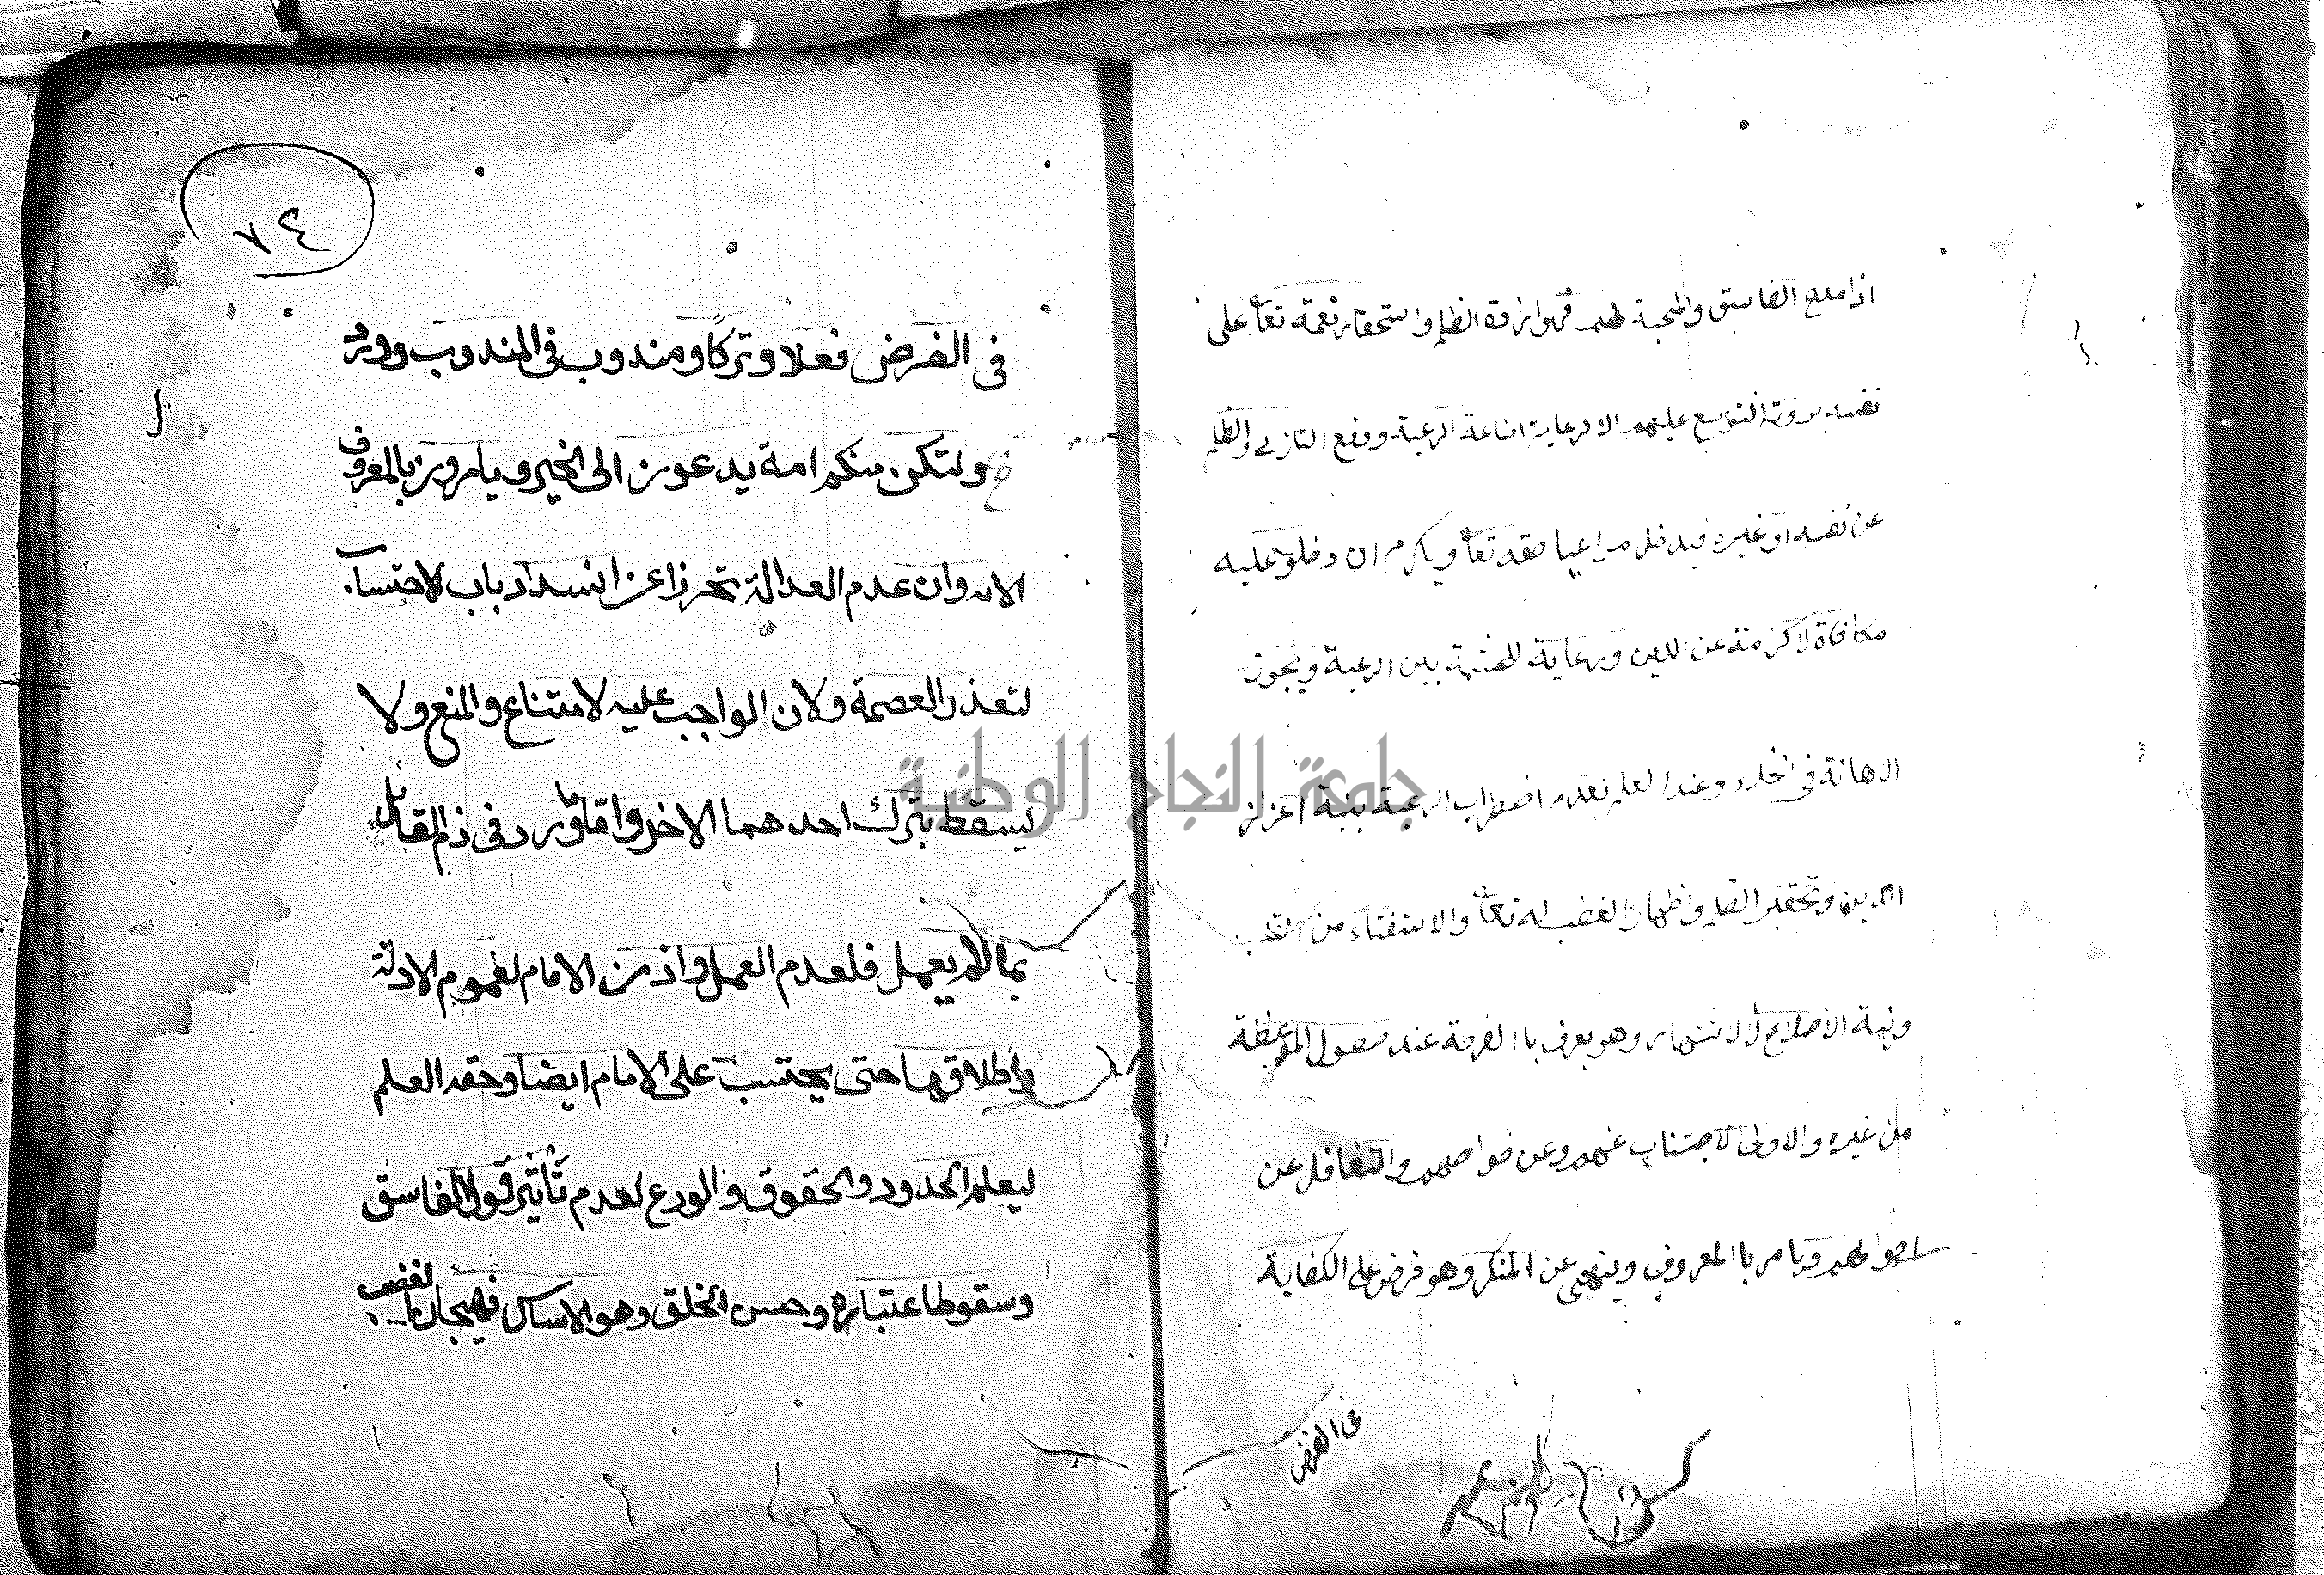 اذا مدح الفاسق والمحبة لهم فهو ازقة الظلم واستحقار نعمة تعا على
نفسه برؤية التوسع عليهم الا لرعاية اطاعة الرعية ودفع التازى والظلم
عن نفسه او غيره فيدخل مراعيا حقه تعا ويكرم ان دخلو عليه
مكافاة لاكرمة عن الدين ورعاية للحشمة بين الرعية ويجوز
الاهانة في الخلاء وعند العلم بعدم اضطراب الرعية بنية اعزاز
الدين وتحقير الظلم واظهار الغضب له تعا والاستفتاء من القلب
ونية الاصلاح لا الاشتهار وهو يعرف با الفرحة عند حصول الموعظة
من غيره والاولى الاجتناب عنهم وعن خواصهم والتغافل عن
احوالهم ويامر با المعروف وينهى عن المنكر وهو فرض على الكفاية
في الفرض
٧٤
في الفرض فعلا وتركا ومندوب في المندوب وورد
ولتكن منكم امة يدعون الى الخير ويامرون بالمعروف
الايه وان عدم العدالة تحرزا عن انسداد باب الاحتساب
لتعذر العصمة ولان الواجب عليه الامتناع والمنع ولا
يسقط بترك احدهما الاخر واما ما ورد في ذم القائل
بما لم يعمل فلعدم العمل واذن الامام لعموم الادلة
واطلاقها حتى يحتسب على الامام ايضا وحقه العلم
ليعلم الحدود والحقوق والورع لعدم تأثير قول الفاسق
وسقوط اعتباره وحسن الخلق وهو الاساس فهيجان الغضب
جامعة النجاح الوطنية